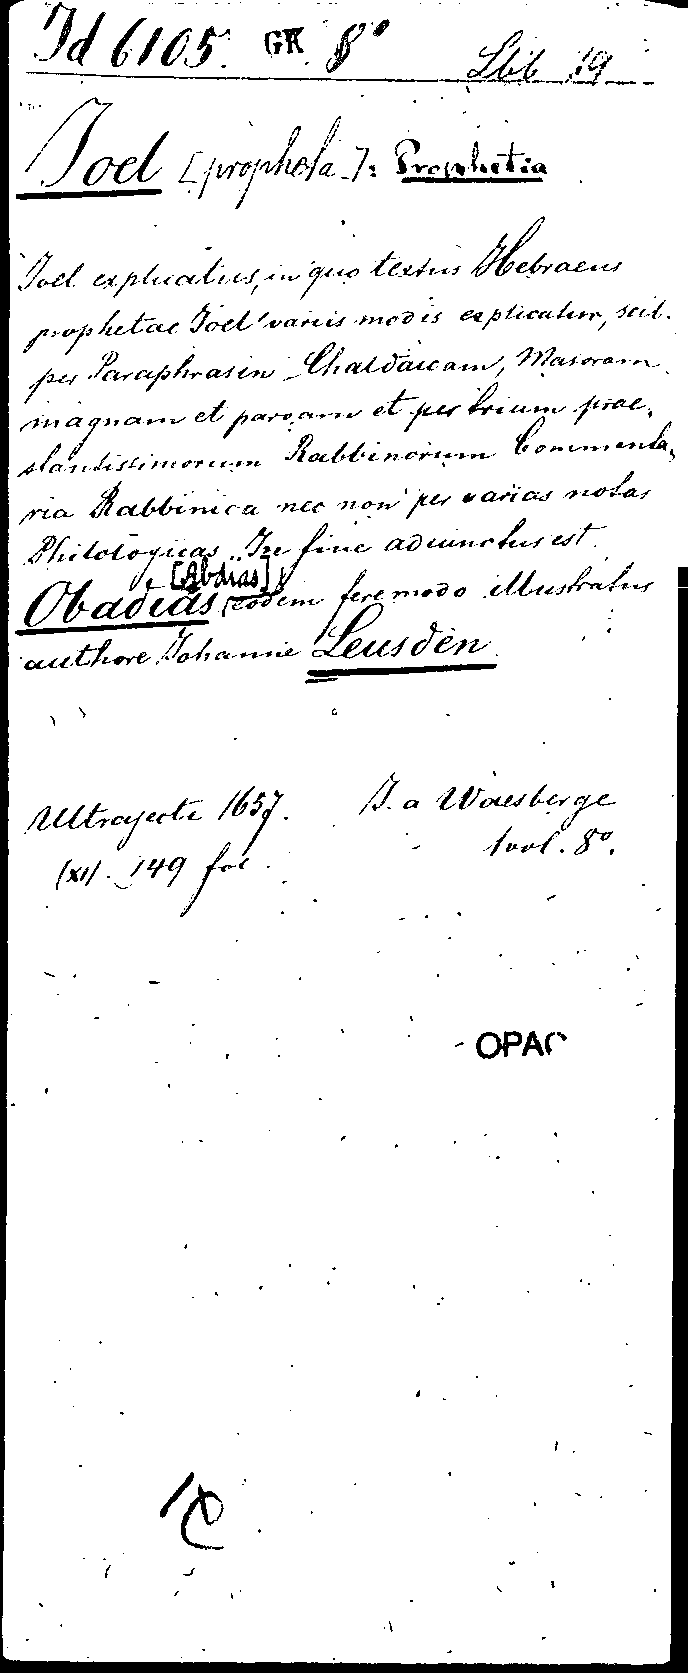 Id 6105. GK 8° Sbb 19
Joel [propheta]: Prophetia
Joel explicatus, in quo textus Hebraeus
prophetae Joel variis modis explicatur, scil.
per Paraphrasin Chaldaicam, Masoram
magnam et parvam et per trium prae-
stantissimorum Rabbinorum Commenta-
ria Rabbinica nec non per varias notas
Philologicas. In fine adiunctus est
[Abdias]
Obadias eodem fere modo illustratus
authore Johanne Leusden
Ultrajecti 1657. J. a Waesberge
(XI). 149 fol. 1 vol. 8°.
OPAC